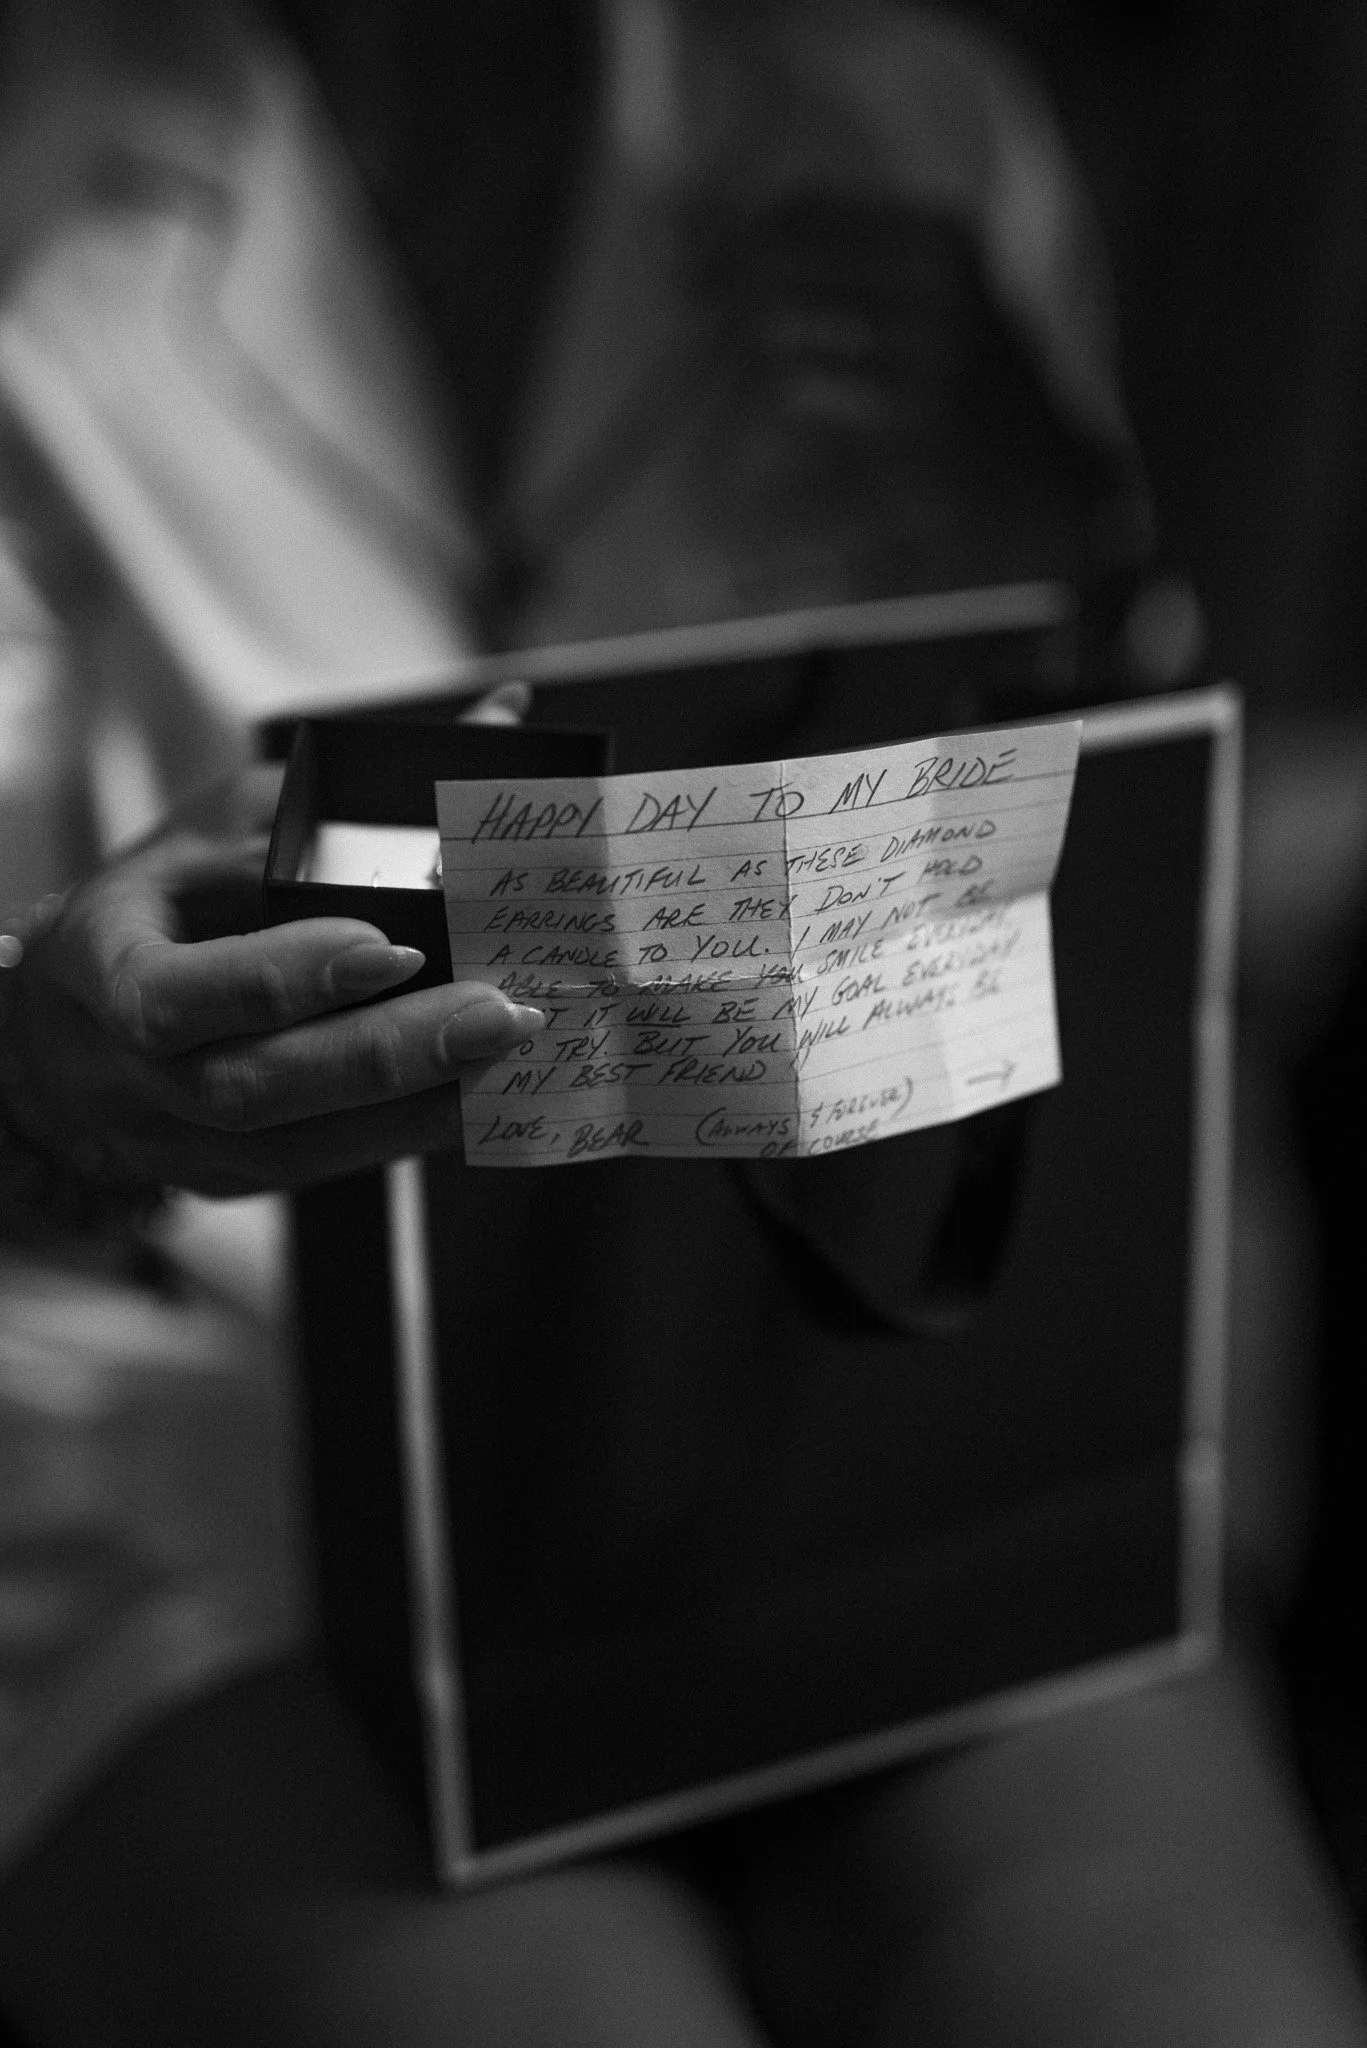 HAPPY DAY TO MY BRIDE
AS BEAUTIFUL AS THESE DIAMOND
EARRINGS ARE THEY DON'T HOLD
A CANDLE TO YOU. I MAY NOT BE
ABLE TO MAKE YOU SMILE EVERYDAY,
IT WILL BE MY GOAL EVERYDAY
TO TRY. BUT YOU WILL ALWAYS BE
MY BEST FRIEND
LOVE, BEAR (ALWAYS & FOREVER)
OF COURSE